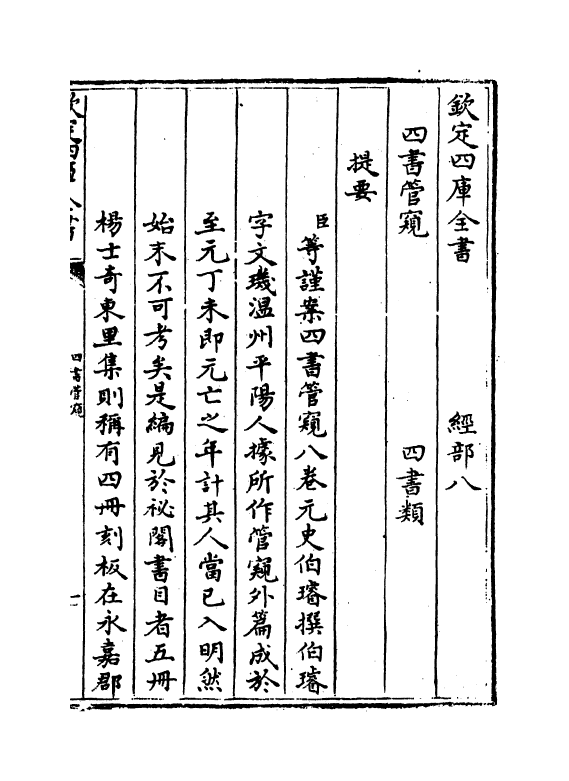 欽定四庫全書 經部八
四書管窺 四書類
提要
臣等謹案四書管窺八卷元史伯璿撰伯璿
字文璣温州平陽人據所作管窺外篇成於
至元丁未即元亡之年計其人當已入明然
始末不可考矣是編見於祕閣書目者五冊
楊士奇東里集則稱有四冊刻板在永嘉郡
欽定四庫全書
四書管窺
一